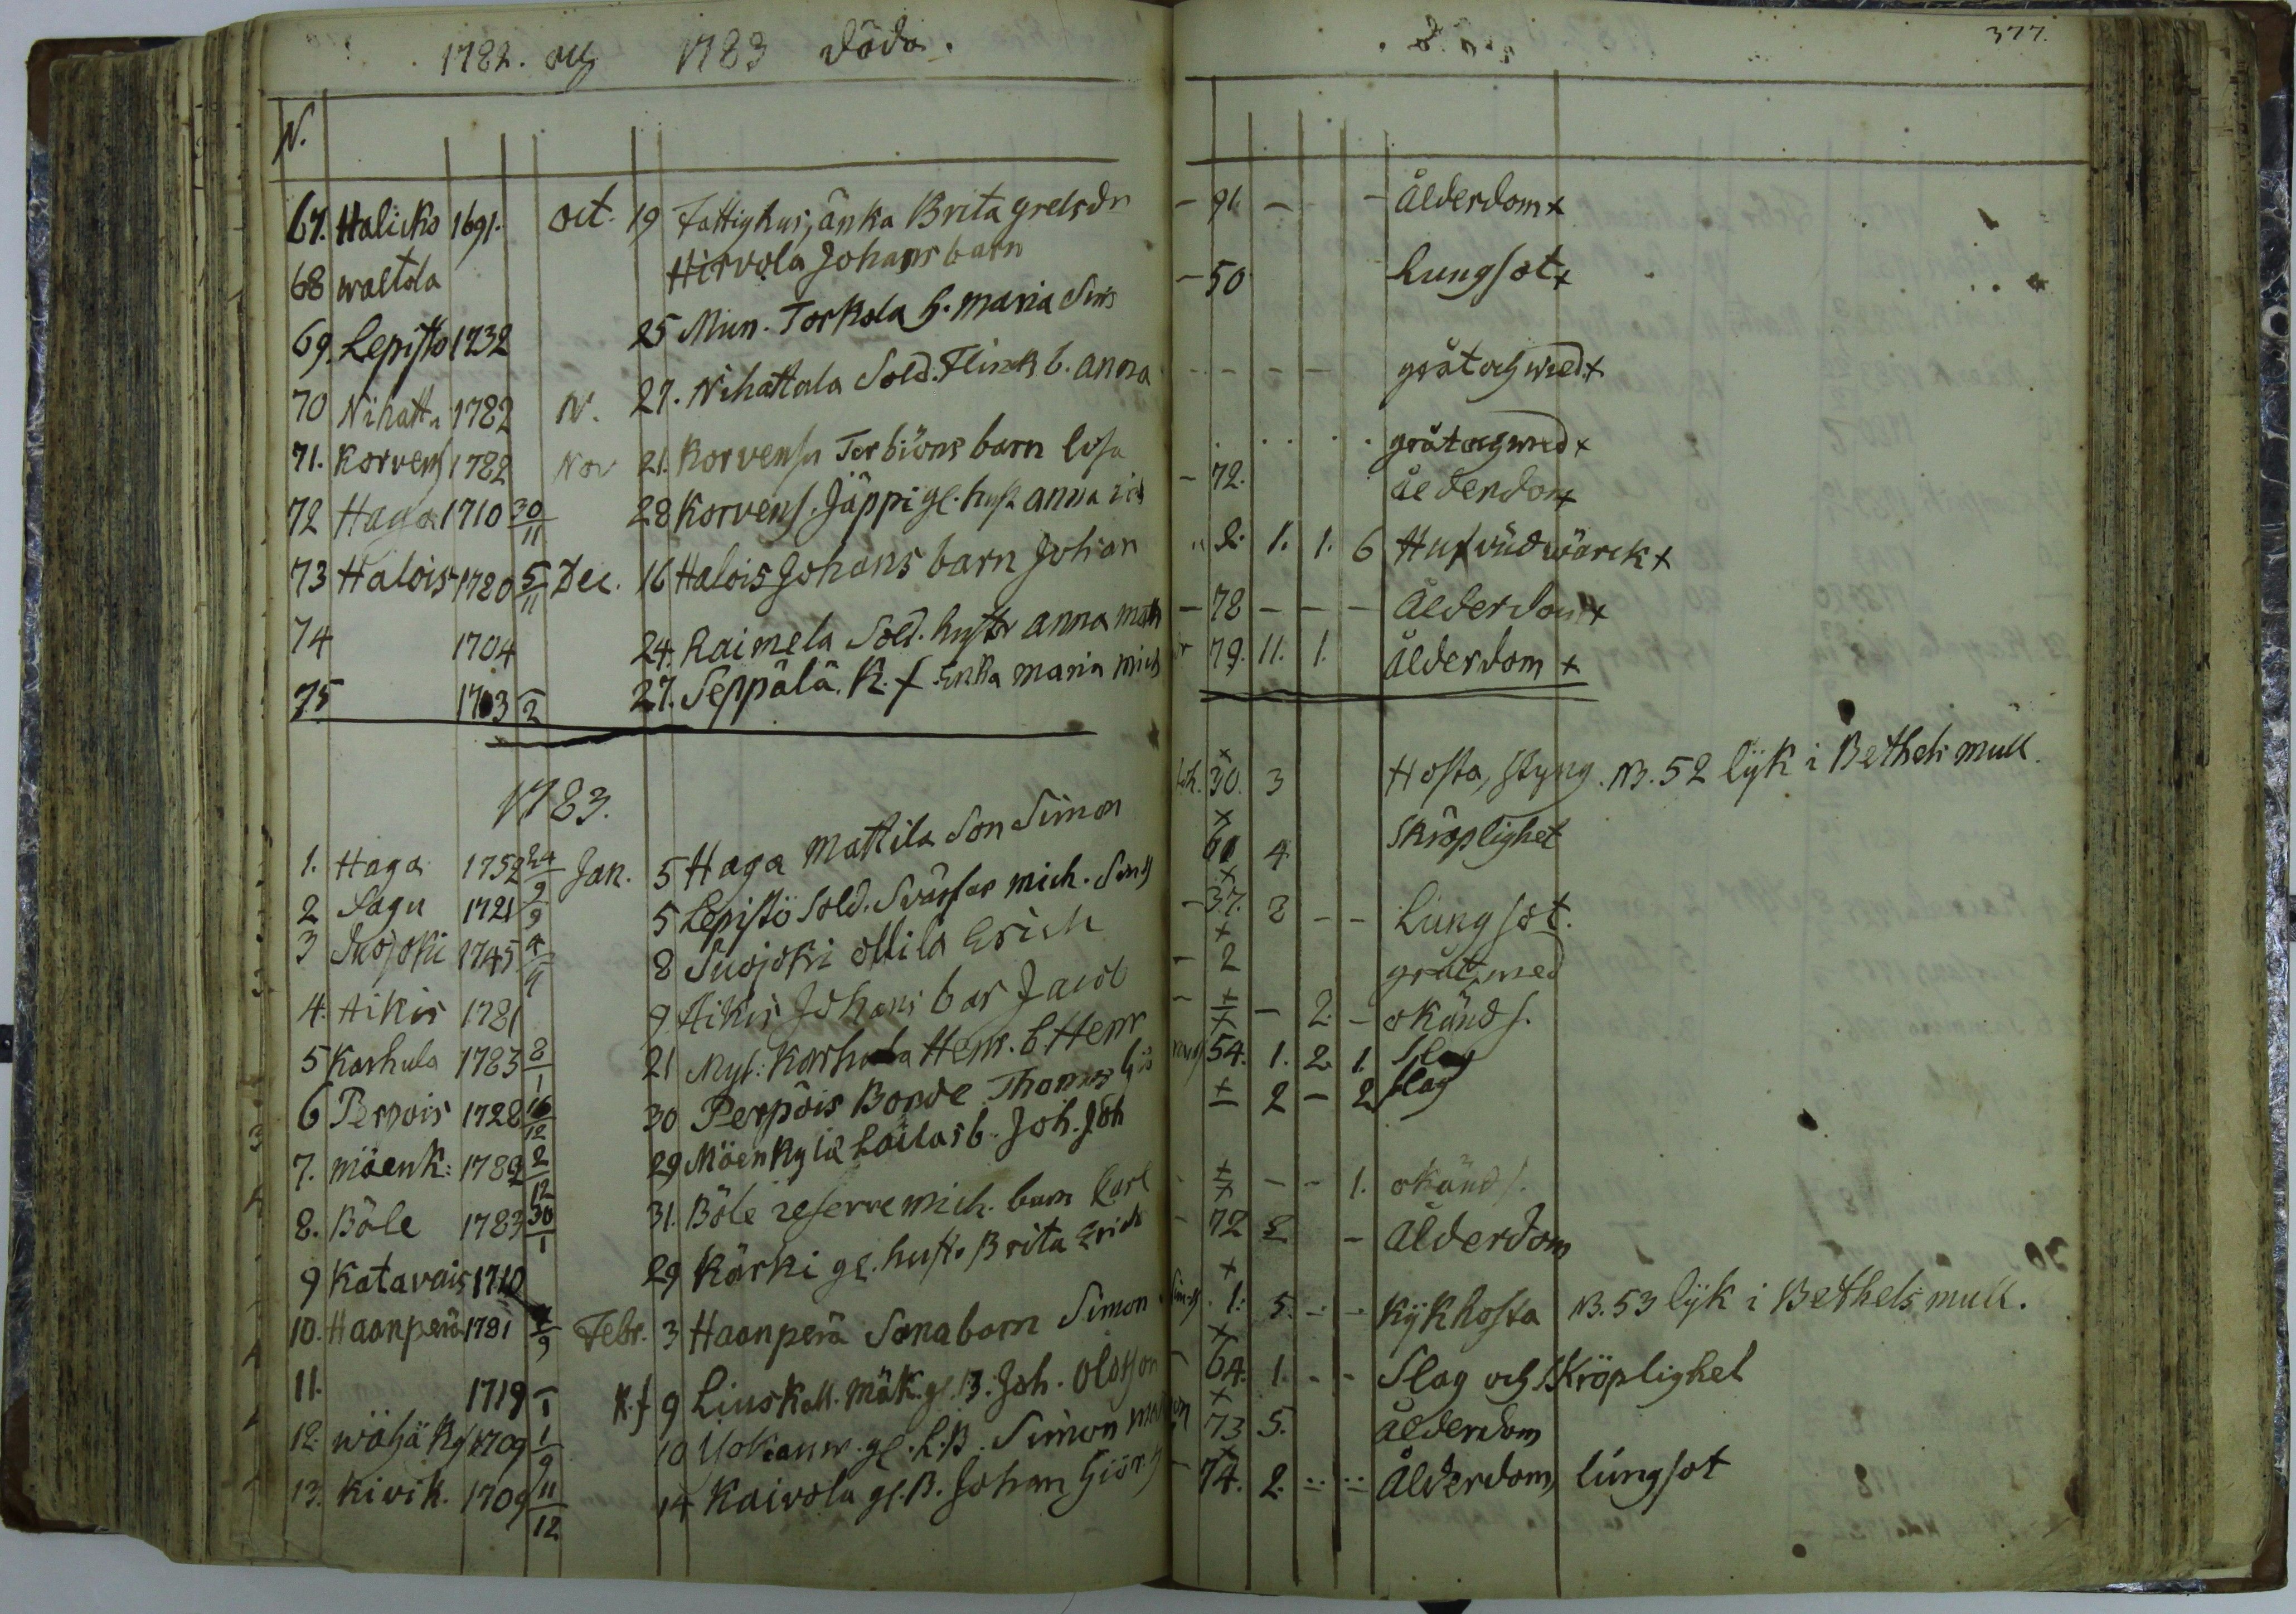 1782. och 1783 döda.
377.
N.
67. Halicko 1691. Oct. 19 Fattighus, änka Brita grelsdr – 91 – – ålderdom x
68 waltola Hirvola Johans barn
69. Lepistö 1732 25 Mun. Torkola h. Maria Sims – 50 Lungsot x
70 Nihatt. 1782 N. 27. Nihattala Sold. Flinks b. Anna - - - - gråt och wred x
71. Korvens 1782 Nov 21. Korvensu Torbiöns barn Lisa . . . . gråt och wred x
72 Haga 1710 30/11 28 Korvens. Jäppi gl. hust. anna – 72. ålderdom x
73 Halois 1780 5/11 Dec. 16 Halois Johans barn Johan 2. 1. 1. 6 Hufvüdwärck x
74 1704 24. Raimela Sold. hustr anna Matts – 78 – – – ålderdom x
75 1703 2 27. Seppälä. K. f. Enka maria Mich 79. 11. 1. ålderdom x
1783.
1. Haga 1752 24/9 Jan. 5 Haga Mattila Son Simon x 30. 3 Hosta, styng. NB. 52 lÿk i Bethels mull.
2 Sagu 1721 9 5 Lepistö Sold. Svärfar mich. x 61 4 Skröplighet
3 Suojoki 1745 4/11 8 Suojoki ollila Erich x – 37. 2 – – Lungsot.
4. Aikis 1781 9. Aikis Johans bar Jacob x – 2 gråt, wred
5 Karhula 1783 8/1 21 Nyb: Karhula Henr. b. Henr – x – 2. – okänd s.
6 Perpois 1728 16/12 30 Perpöis Bonde Thomas x 54. 1. 2. 1. Slag
7. mäenk: 1782 2/12 29 Mäenkylä Lailas b. Joh. Joh x 2 – 2 slag
8. Böle 1783 30/1 31. Böle reserve mich. barn Karl - x – – 1. okänd s.
9 Katavais 1710 29 Kärki gl. hust. Brita Erich x – 72 2 – ålderdom
10. Haanperä 1781 9 Febr. 3 Haanperä Sonabarn Simon Sim. x 1. 5. – – Kÿkhosta NB. 53 lÿk i Bethels mull.
11. 1719 1 K. f 9 Liuskall. mäk. gl. B. Joh. Olofson x – 64. 1. - - Slag och skröplighet
12. wähäky 1709 1/9 10 gl. h. B. Simon x 73 5. ålderdom
13. Kivik. 1709 11/12 14 Kaivola gl. B. Johan Giörs x – 74. 2. – – ålderdom, lungsot